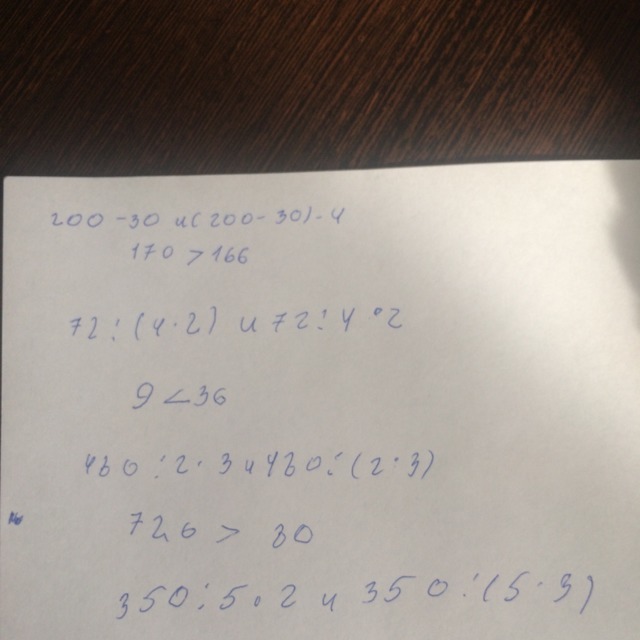 200-30 и (200-30)-4
170 > 166
72:(4·2) и 72:4·2
9 < 36
480:2·3 и 480:(2·3)
720 > 80
350:5·2 и 350:(5·3)